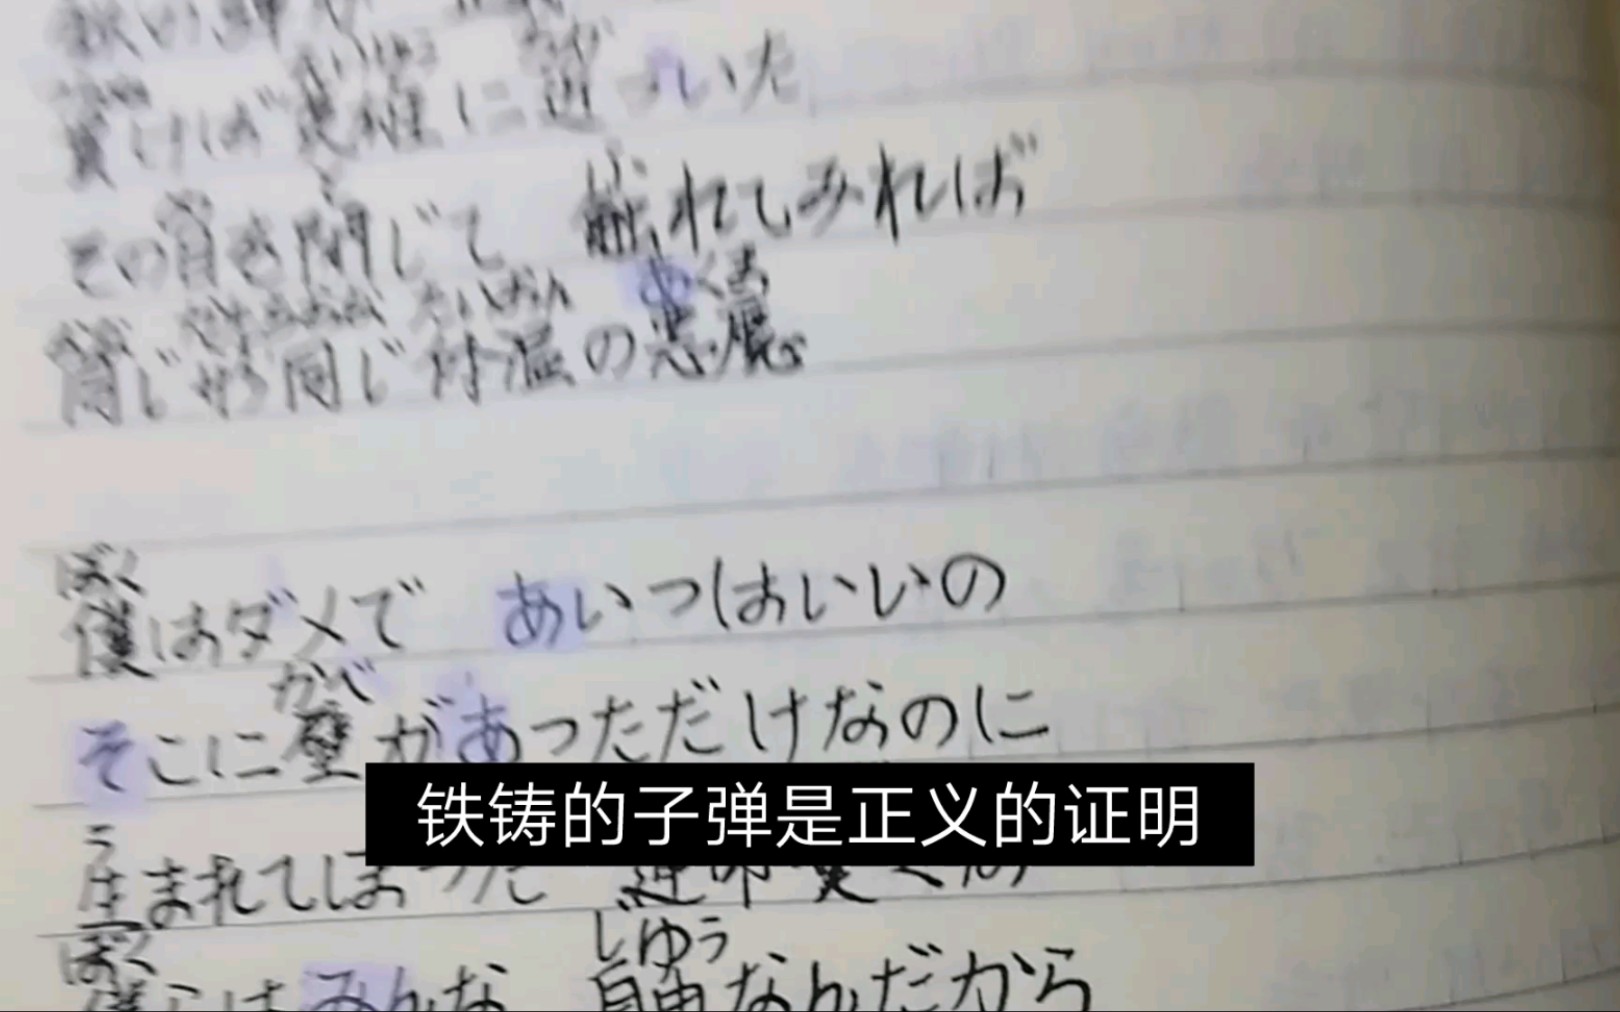 鉄の弾が
貫けば英雄に近づいた
その目を閉じて 触れてみれば
同じ形 同じ体温の悪魔
僕はダメで あいつはいいの
そこに壁があっただけなのに
铁铸的子弹是正义的证明
生まれてしまった 運命嘆くな
僕らはみんな 自由なんだから